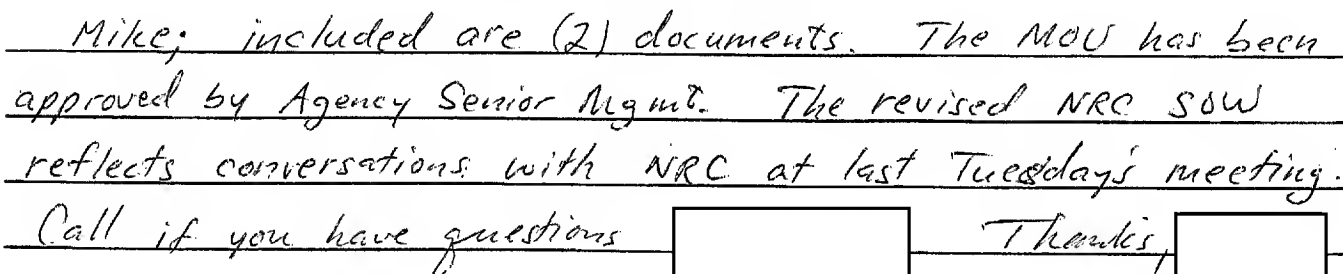 Mike; included are (2) documents. The MOU has been
approved by Agency Senior Mgmt. The revised NRC SOW
reflects conversations with NRC at last Tuesday's meeting.
Call if you have questions Thanks,